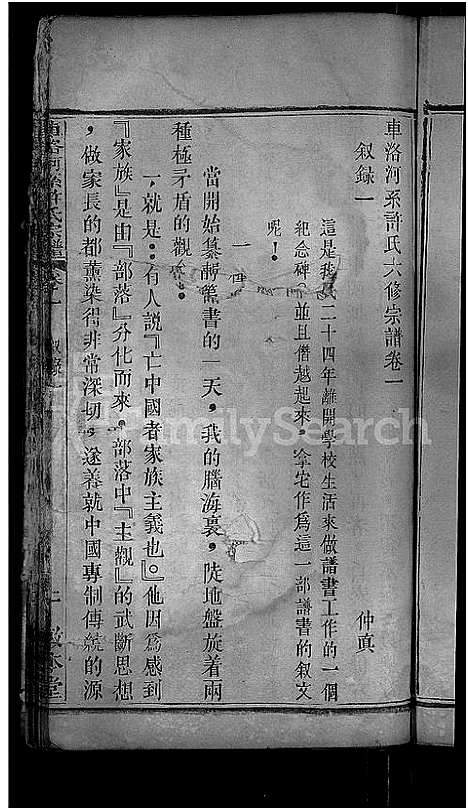 車洛河系許氏六修宗譜卷一
叙錄一
仲真
這是我民二十四年離開學校生活來做譜書工作的一個
紀念碑，並且僭越起來，拿它作爲這一部譜書的叙文
呢！
一
當開始纂輯譜書的一天，我的腦海裏，陡地盤旋着兩
種極矛盾的觀念：
一，就是：有人說『亡中國者家族主義也。』他因爲感到
『家族』是由『部落』分化而來。部落中『主觀』的武斷思想
，做家長的都薰染得非常深切，遂養就中國專制傳統的源
車洛河系許氏宗譜 卷一 叙錄一
堂
FamilySearch